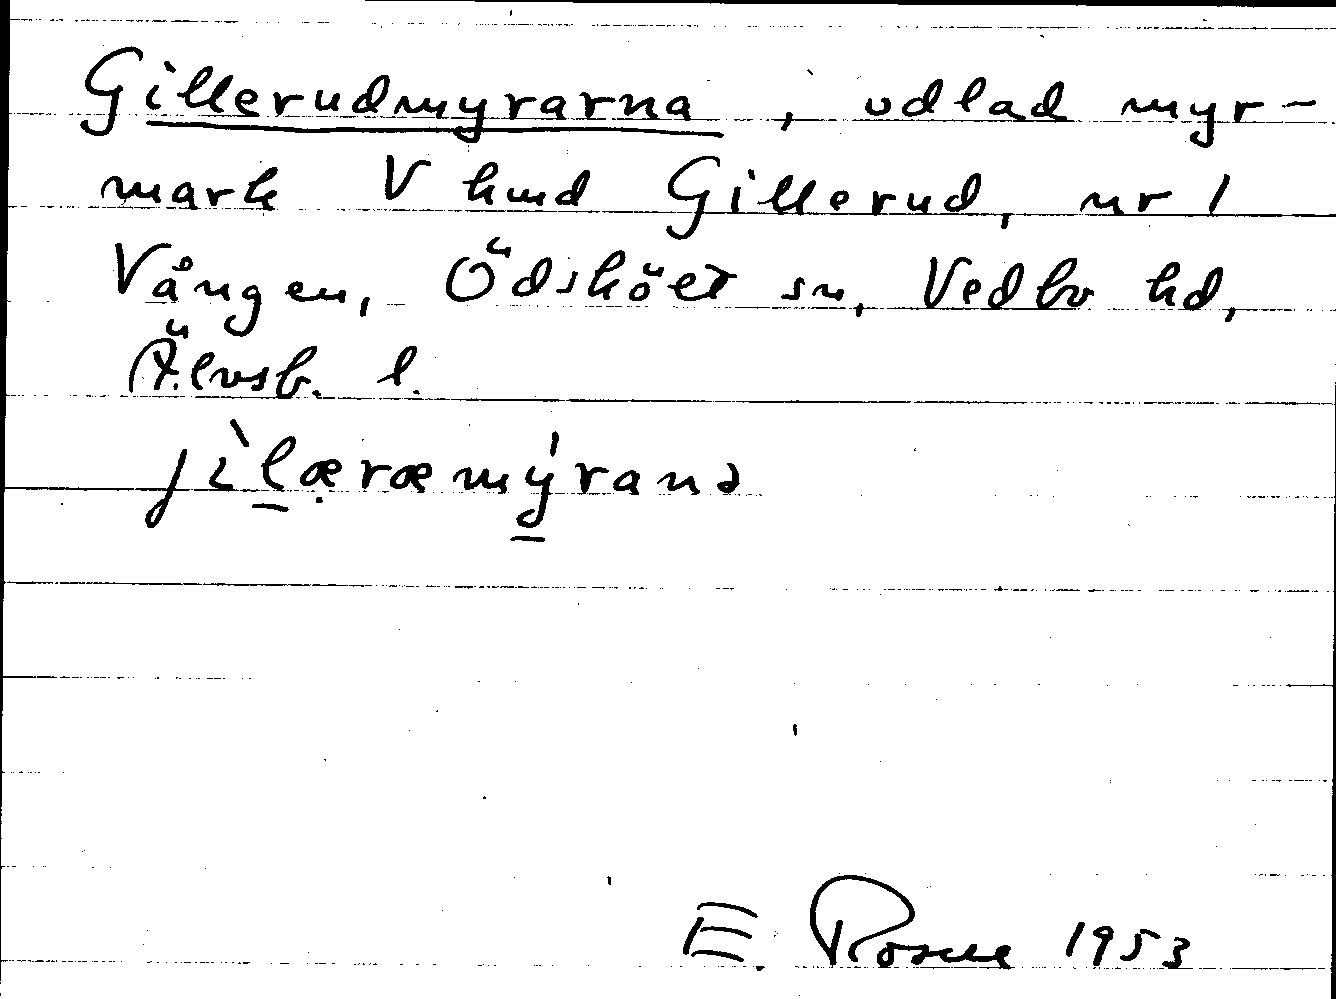 Gillerudmyrarna, odlad myr-
mark V hmd Gillerud, nr 1
Vången, Ödsköet sn, Vedbo hd,
Älvsb. l.
E. Rosne 1953